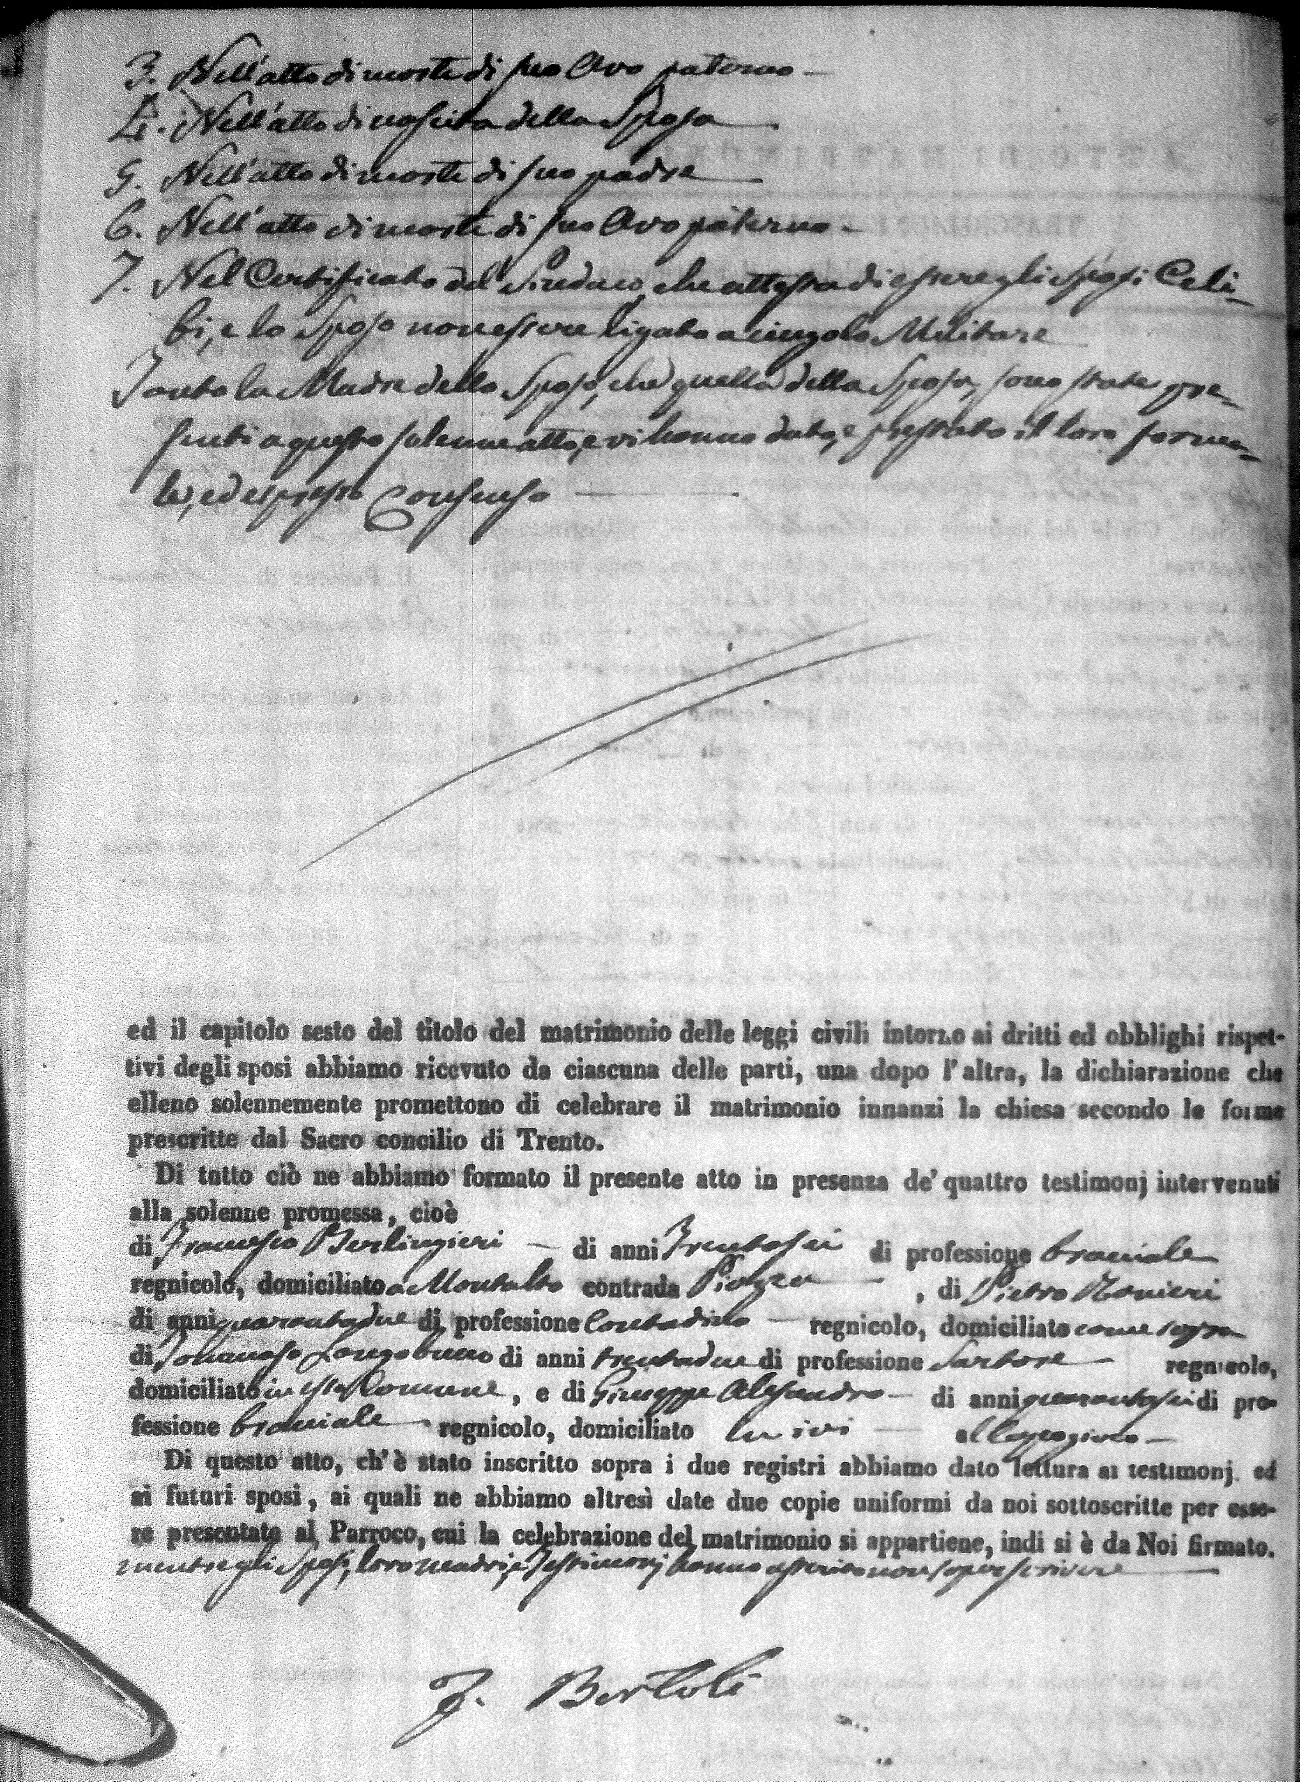 3. Nell'atto di morte di suo Avo paterno —
4. Nell'atto di nascita della Sposa
5. Nell'atto di morte di suo padre
6. Nell'atto di morte di suo Avo paterno —
7. Nel Certificato del Sindaco, che attesta di essere gli Sposi Celi-
bi, e lo Sposo non essere ligato a cingolo Militare
Tanto la Madre dello Sposo, che quella della Sposa, sono state pre-
senti a questo solenne atto, e vi hanno dato, e prestato il loro forma-
le, ed espresso Consenso
ed il capitolo sesto del titolo del matrimonio delle leggi civili intorno ai dritti ed obblighi rispet-
tivi degli sposi abbiamo ricevuto da ciascuna delle parti, una dopo l'altra, la dichiarazione che
elleno solennemente promettono di celebrare il matrimonio innanzi la chiesa secondo le forme
prescritte dal Sacro concilio di Trento.
Di tutto ciò ne abbiamo formato il presente atto in presenza de' quattro testimonj intervenuti
alla solenne promessa, cioè
di Francesco Berlingieri — di anni Trentasei di professione braciale
regnicolo, domiciliato a Montalto contrada Piazza — , di Pietro Ranieri
di anni quarantadue di professione Contadino — regnicolo, domiciliato come sopra
di Tommaso Longobucco di anni trentadue di professione Sartore — regnicolo,
domiciliato in esto Comune , e di Giuseppe Alesandro — di anni quarantasei di pro-
fessione braciale regnicolo, domiciliato ivi —
Di questo atto, ch'è stato inscritto sopra i due registri abbiamo dato lettura ai testimonj. ed
ai futuri sposi, ai quali ne abbiamo altresì date due copie uniformi da noi sottoscritte per esse-
re presentate al Parroco, cui la celebrazione del matrimonio si appartiene, indi si è da Noi firmato.
mentre gli Sposi, loro madri, e Testimonj hanno asserito non saper scrivere
F. Bertoli